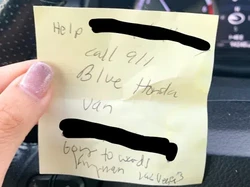 Help
call 911
Blue Honda
Van
Going to wards